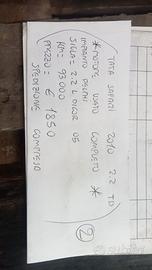 TATA SAFARI 2010 2.2 TD
* MOTORE USATO COMPLETO *
IMPIANTO POMPA
SIGLA = 2.2 L DICOR 05
KM: 93000
PREZZO: € 1850
SPEDIZIONE COMPRESA
2